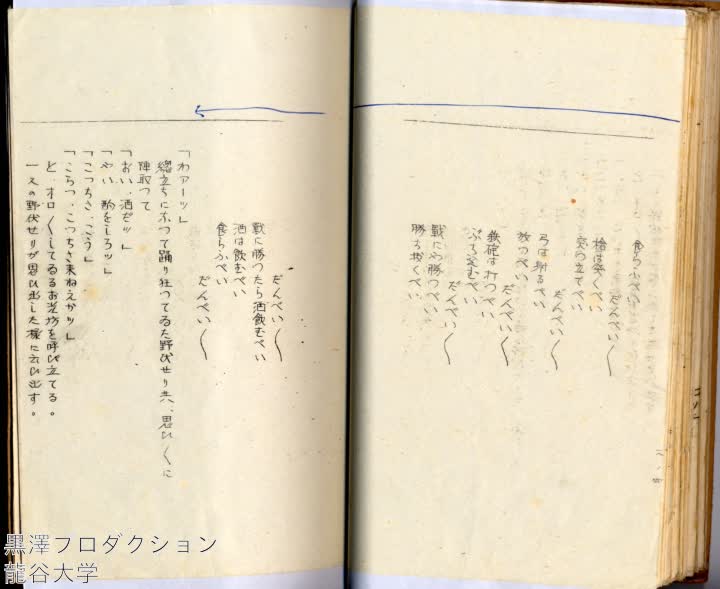 食らふべい
だんべい〱
槍は突くべい
突つ立てべい
だんべい〱
弓は射るべい
放つべい
だんべい〱
鉄砲は打つべい
ぶち込むべい
だんべい〱
戰にや勝つべい
勝ち抜くべい
だんべい〱
戰に勝つたら酒飲むべい
酒は飲むべい
食らふべい
だんべい〱
「わアーッ」
總立ちになつて踊り狂つてゐた野伏せり共、思ひ〱に
陣取つて
「おい、酒だッ」
「やい 酌をしろッ」
「こつちさ、こう」
「こらつ、こつちさ来ねえかッ」
と、オロ〱してゐるお光坊を呼び立てる。
一人の野伏せりが思ひ出した様に云ひ出す。
黒澤プロダクション
龍谷大学